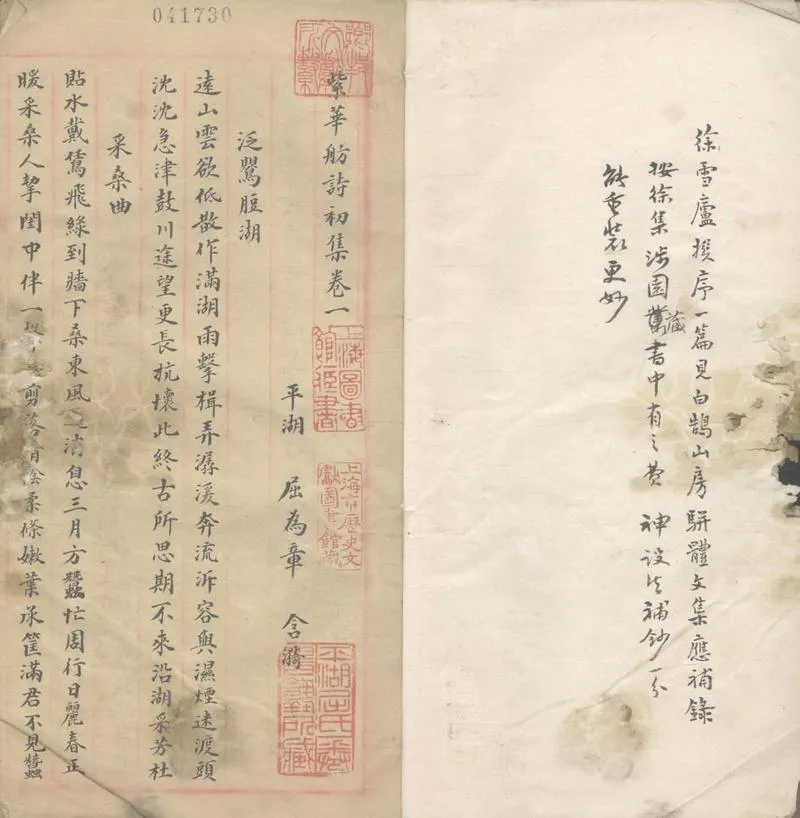 徐雪廬撰序一篇見白鵠山房駢體文集應補錄
按徐集涉园舊藏書中有之費神设法補鈔一分
能重裝更妙
041730
紫華舫詩初集卷一
平湖 屈為章 含漪
泛鸎脰湖
遠山雲欲低散作滿湖雨擊楫弄潺湲奔流泝容與濕煙迷渡頭
沈沈急津鼓川途望更長抗懷此終古所思期不來沿湖采芳杜
采桑曲
貼水戴鵀飛綠到牆下桑東風消息三月方蠶忙周行日麗春正
暖采桑人挈閨中伴一剪落清陰柔條嫩葉承筐滿君不見蠶
上海圖書館藏書
上海市歷史文獻圖書館藏